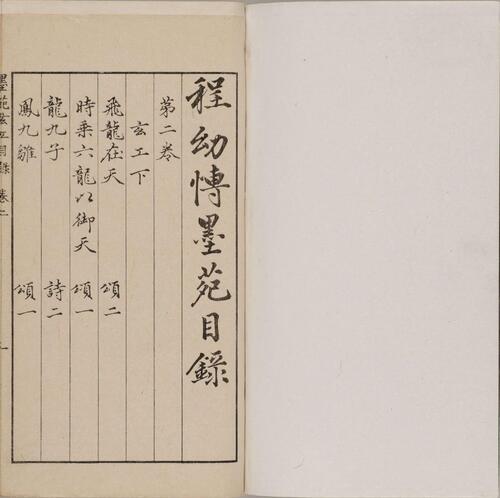 程幼慱墨苑目錄
第二卷
玄工下
飛龍在天 頌二
時乘六龍以御天 頌一
龍九子 詩二
鳳九雛 頌一
墨苑玄工目錄 卷二 一